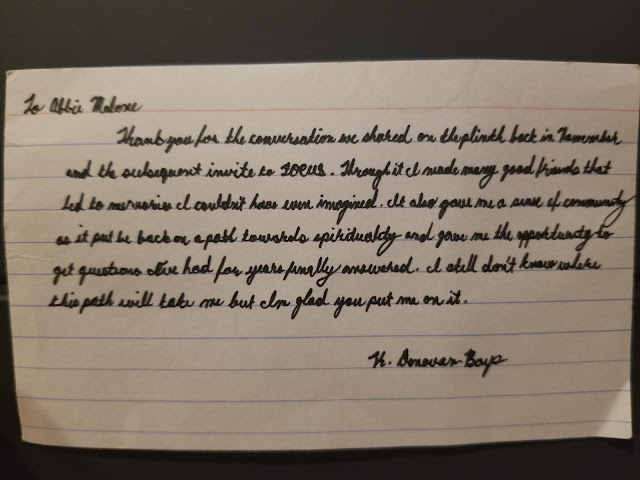 To Abbie Malone
Thank you for the conversation we shared on the plinth back in November
and the subsequent invite to FOCUS. Through it I made many good friends that
led to memories I couldn't have even imagined. It also gave me a sense of community
as it put be back on a path towards spirituality and gave me the opportunity to
get questions I've had for years finally answered. I still don't know where
this path will take me but I'm glad you put me on it.
K. Donovan